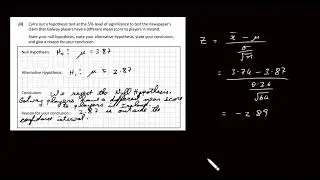 (ii) Carry out a hypothesis test at the 5% level of significance to test the newspaper's
claim that Galway players have a different mean score to players in Ireland.
State your null hypothesis, state your alternative hypothesis, state your conclusion,
and give a reason for your conclusion.
Null Hypothesis: H₀: μ = 3.87
Alternative Hypothesis: H₁: μ ≠ 3.87
Conclusion: We reject the Null Hypothesis.
Galway players have a different mean score
to players in Ireland
Reason for your conclusion: 3.87 is outside the
confidence interval.
z = x̄ - μ / σ/√n
= 3.74 - 3.87 / 0.36/√64
= -2.89